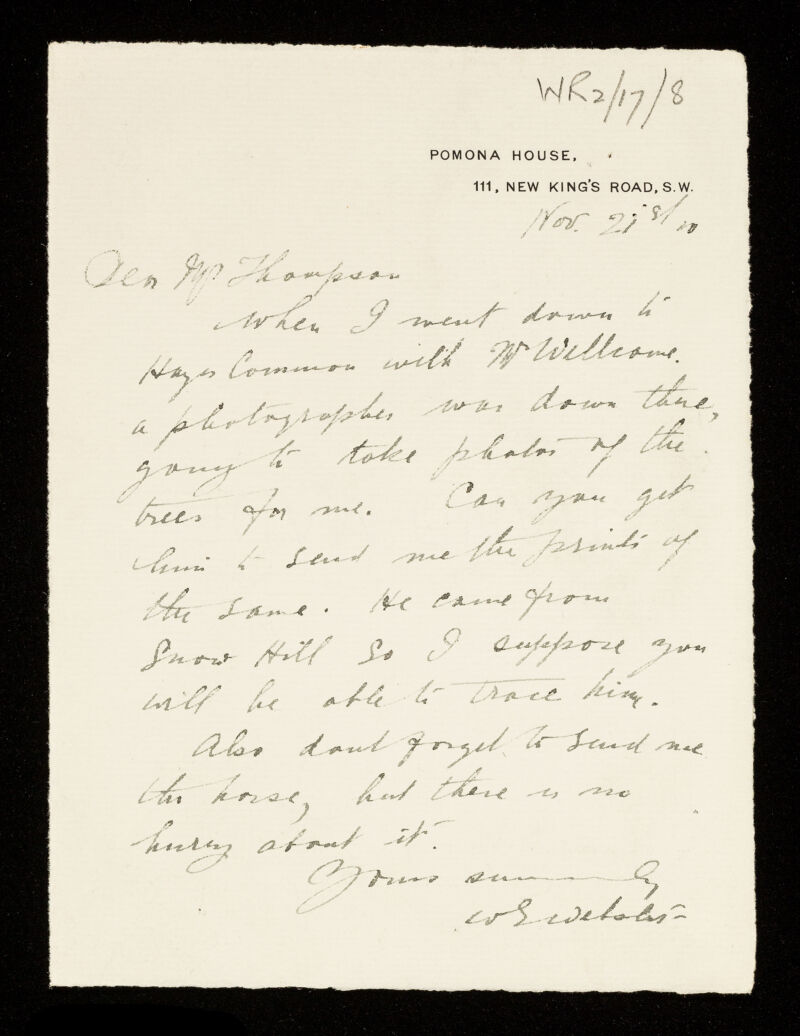 WR2/17/8
POMONA HOUSE,
111, NEW KING'S ROAD, S.W.
Nov. 21st 10
Dear Mr Thompson
When I went down to
Hayes Common with Mr Wellcome.
a photographer was down there,
going to take photos of the
trees for me. Can you get
him to send me the prints of
the same. He came from
Snow Hill so I suppose you
will be able to trace him.
Also dont forget to send me
the horse, but there is no
hurry about it.
Yours sincerely
W E Webster